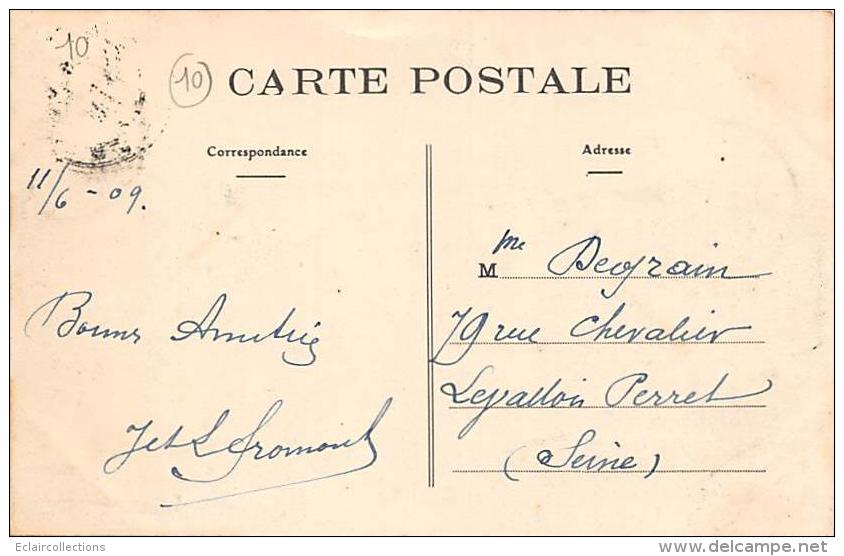 10
10
CARTE POSTALE
Correspondance
Adresse
11/6-09.
Bonnes Amitiés
J et L Fromont
Mme Degrain
79 rue Chevalier
Levallois Perret
(Seine)
Eclaircollections
www.delcampe.net